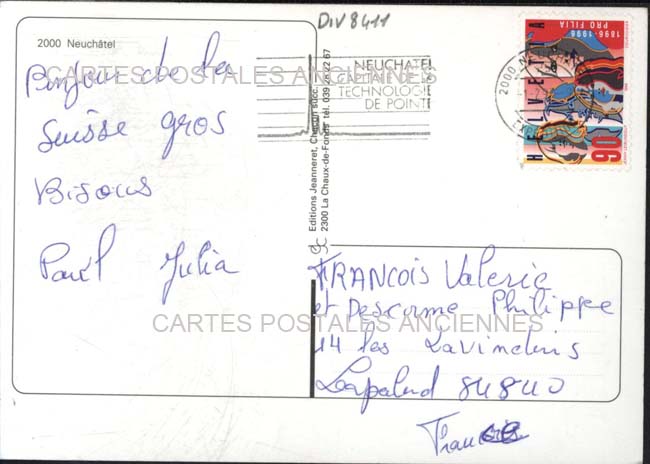 DIV 8411
2000 Neuchâtel
Bonjour de la
Suisse gros
Bisous
Paul Julia
CARTES POSTALES ANCIENNES
Editions Jeanneret,
2300 La Chaux-de-Fonds tel. 039
NEUCHATEL
TECHNOLOGIE
DE POINTE
2000
HELVETIA
1896-1996
PRO FILIA
90
FRANCOIS Valerie
et Descorme Philippe
14 les
84840
France
CARTES POSTALES ANCIENNES